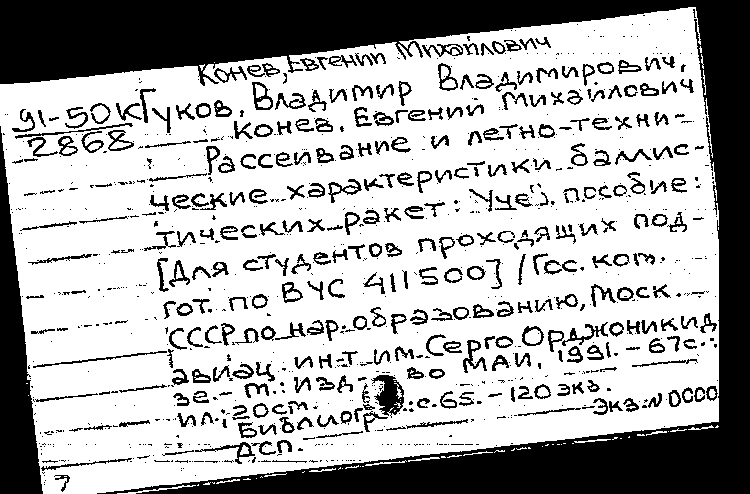 Конев, Евгений Михайлович
91-50к Гуков, Владимир Владимирович,
2868 Конев, Евгений Михайлович
Рассеивание и летно-техни-
ческие характеристики баллис-
тических ракет: Учеб. пособие:
[Для студентов проходящих под-
гот. по ВУС 411500] / Гос. ком.
СССР по нар. образованию, Моск.
авиац. ин-т им. Серго Орджоникид
зе. - М.: Изд-во МАИ, 1991. - 67с.:
ил.; 20см.
Библиогр.: с.65. - 120 экз.
ДСП. Экз. N 0000
7